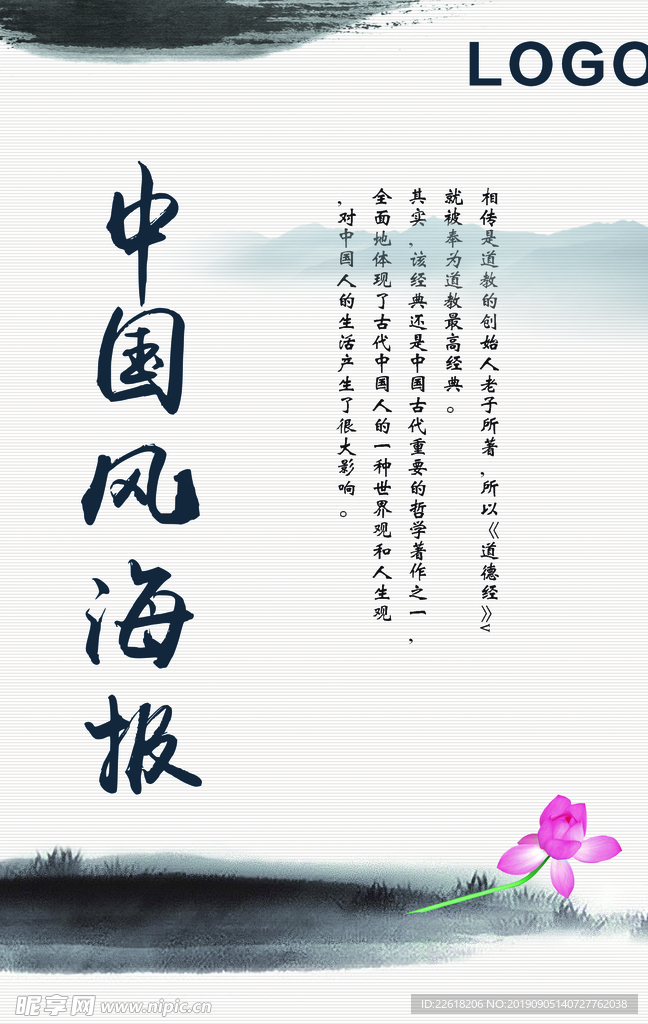 LOGO
中国风海报
相传是道教的创始人老子所著,所以《道德经》
就被奉为道教最高经典。
其实,该经典还是中国古代重要的哲学著作之一,
全面地体现了古代中国人的一种世界观和人生观
,对中国人的生活产生了很大影响。
昵享网 www.nipic.cn
ID:22618206 NO:20190905140727762038